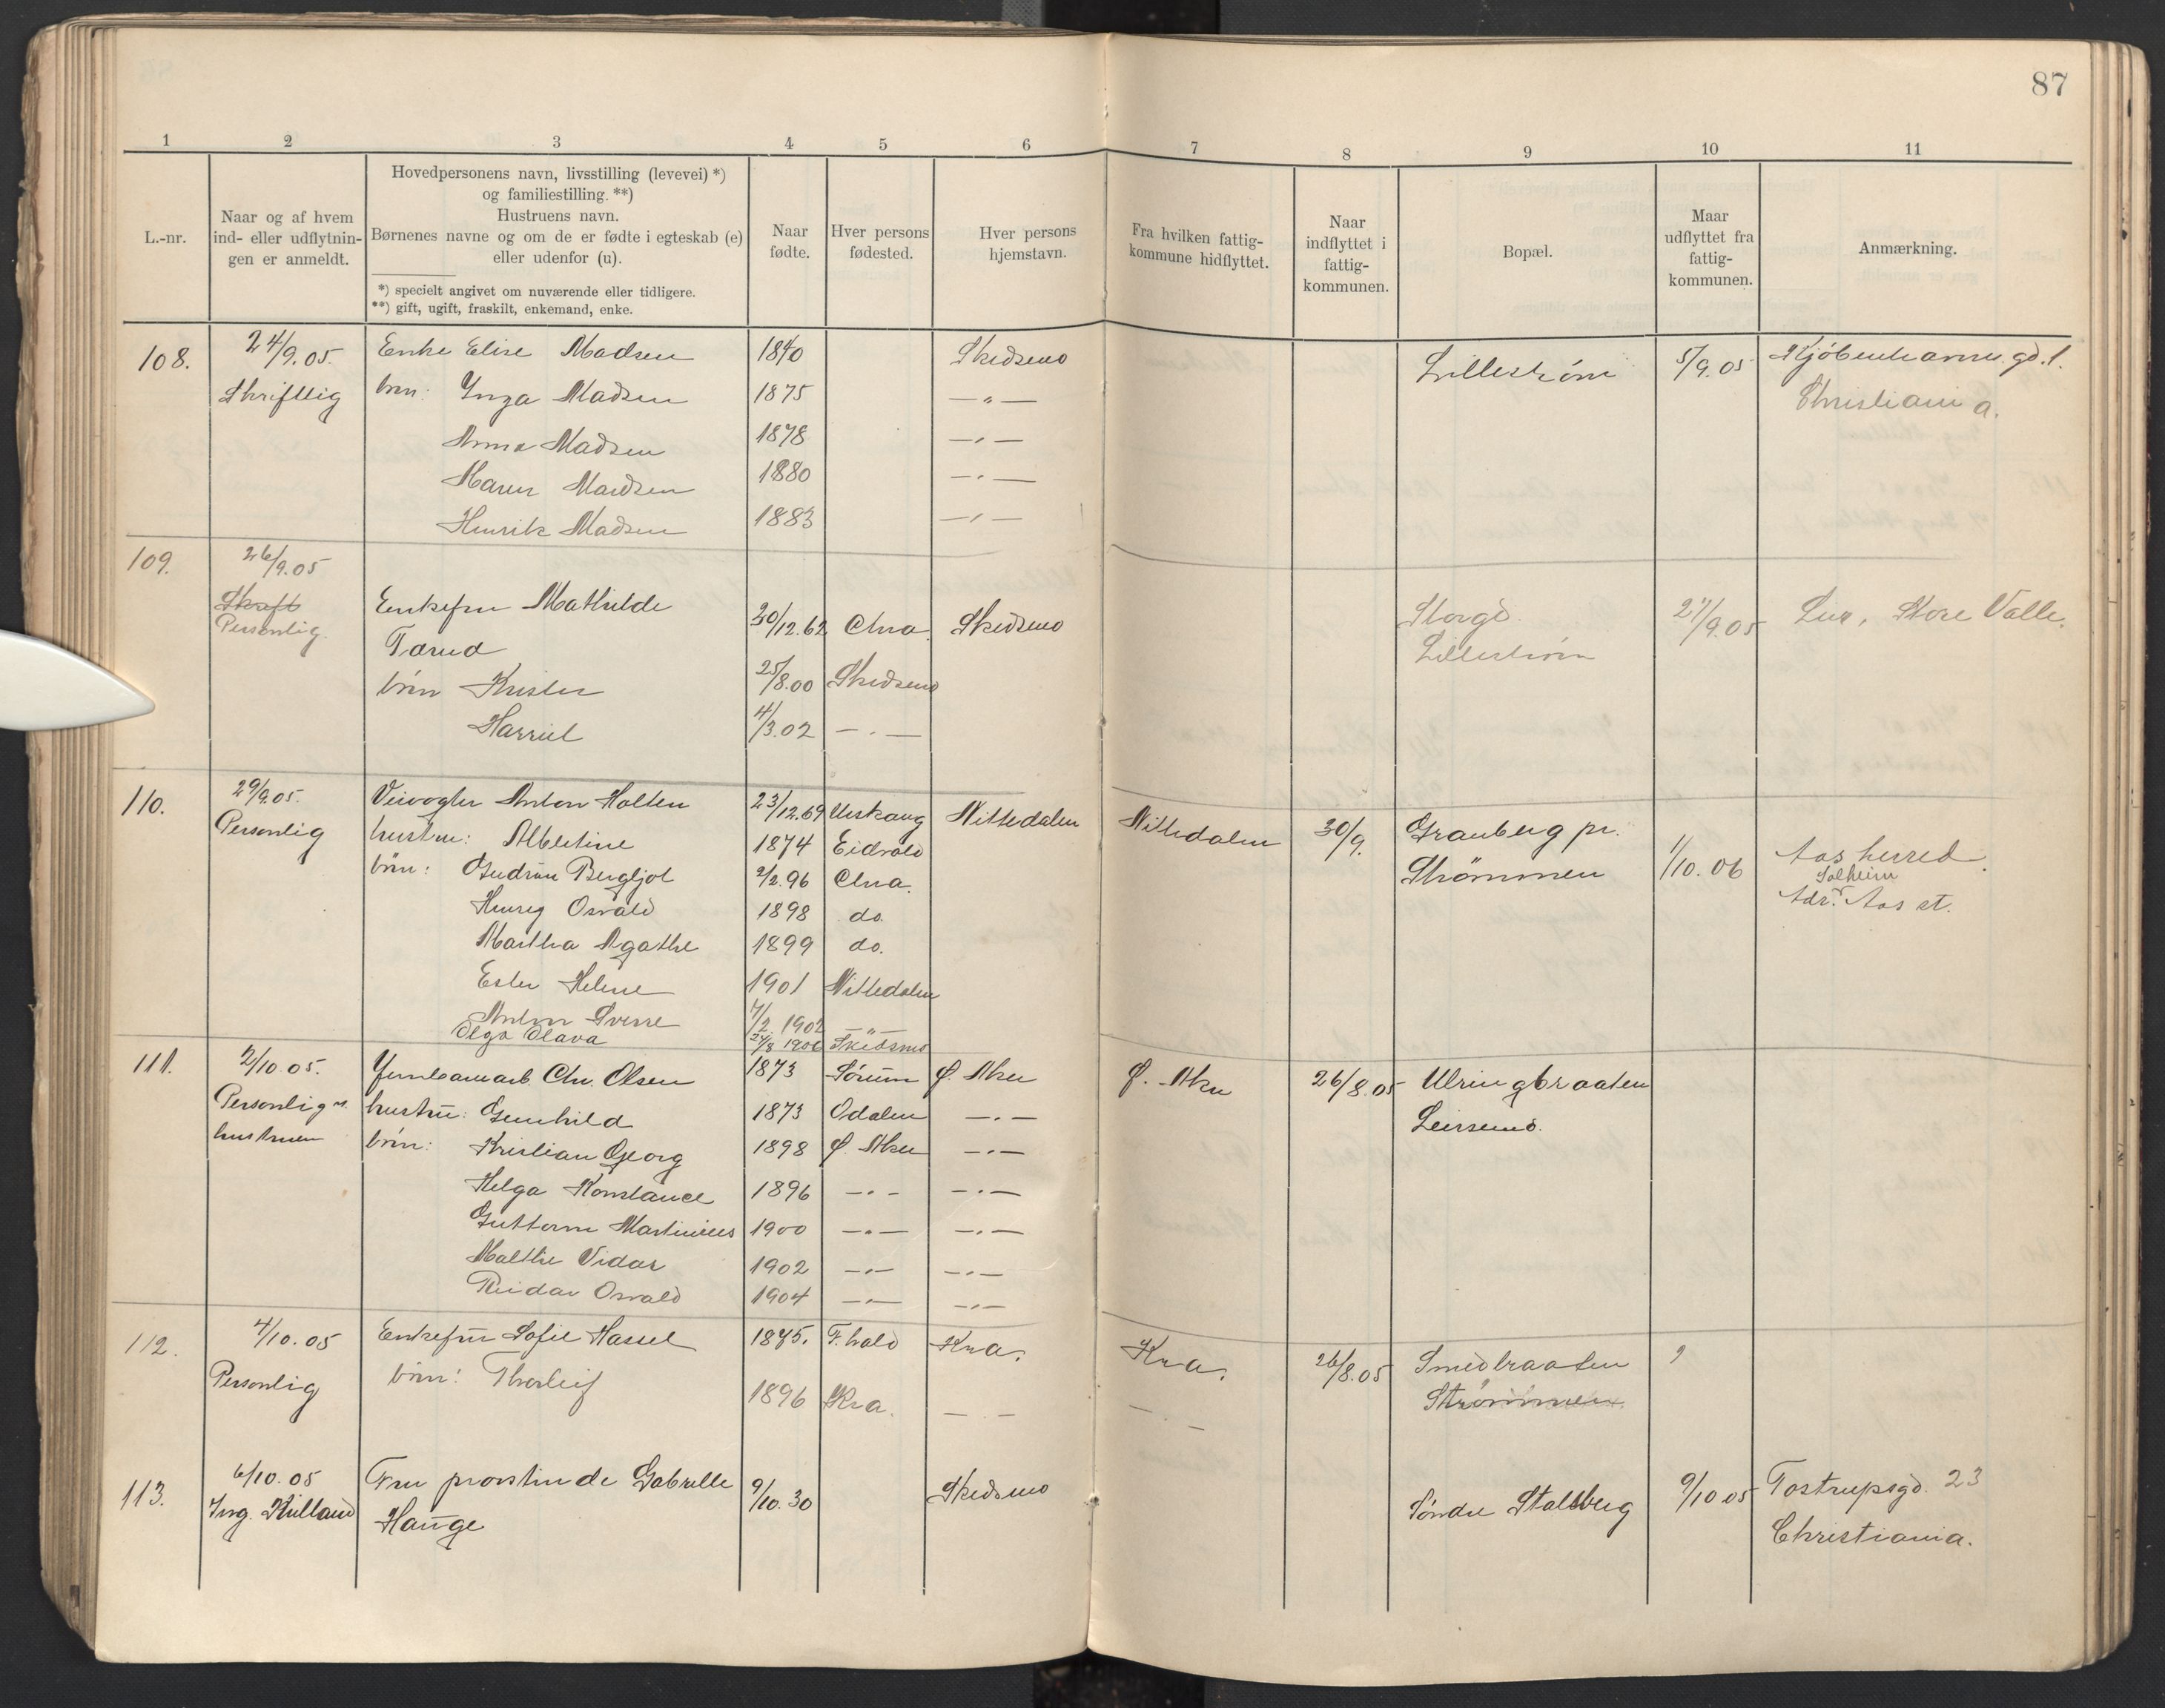 87
1 2 3 4 5 6 7 8 9 10 11
L.-nr.
Naar og af hvem
ind- eller udflytnin-
gen er anmeldt.
Hovedpersonens navn, livsstilling (levevei) *)
og familiestilling. **)
Hustruens navn.
Børnenes navne og om de er fødte i egteskab (e)
eller udenfor (u).
*) specielt angivet om nuværende eller tidligere.
**) gift, ugift, fraskilt, enkemand, enke.
Naar
fødte.
Hver persons
fødested.
Hver persons
hjemstavn.
Fra hvilken fattig-
kommune hidflyttet.
Naar
indflyttet i
fattig-
kommunen.
Bopæl.
Maar
udflyttet fra
fattig-
kommunen.
Anmærkning.
108. 24/9.05. Enke Elise Madsen 1840 Skedsmo Lillestrøm 5/9.05 Kjøbenhavnu.gd.1.
Skriftlig børn: Inga Madsen 1875 —"— Christiania.
Anna Madsen 1878 —"—
Maren Madsen 1880 —"—
Henrik Madsen 1883 —"—
109. 26/9.05
Skraft Enkefru Mathilde 30/12.62 Chra. Skedsmo Storgd. 27/9.05 Store Valle.
Personlig. Tørud Lillestrøm
børn Krister 25/8.00 Skedsmo
Harriet 4/3.02 —"—
110. 29/9.05. Veivogter Anton Holten 23/12.69 Urskoug Nittedalen Nittedalen 30/9. Grauberg pr. 1/10.06 Aas herred.
Personlig hustru: Albertine 1874 Eidsvold Strömmen Solheim
børn: Gudrun Bergljot 2/2.96 Chra. Adr. Aas st.
Henry Osvald 1898 do.
Martha Agathe 1899 do.
Ester Helene 1901 Nittedalen
Anton Sverre 7/2 1902 —"—
Olga Olava 24/8 1906 Skedsmo
111. 2/10.05. Jernbanearb. Chr. Olsen 1873 Sørum Ø. Aker Ø. Aker 26/8.05 Ulringbraaten
Personlig v. hustru: Gunhild 1873 Odalen —"— Leirsund.
hustruen børn: Kristian Georg 1898 Ø. Aker —"—
Helga Konstance 1896 —"— —"—
Guttorm Martinius 1900 —"— —"—
Malthe Vidar 1902 —"— —"—
Reidar Osvald 1904 —"— —"—
112. 4/10.05 Enkefru Sofie Hassel 1875. F.hald Kra. Kra. 26/8.05 Smedbraaten ?
Personlig børn: Thorleif 1896 Kra. —"— —"— Strømmen.
113. 6/10.05 Fru provstinde Gabrielle 9/10.30 Skedsmo Søndre Stalsberg 9/10 05 Tostrupsgd. 23
Ing. Kielland Hauge Christiania.